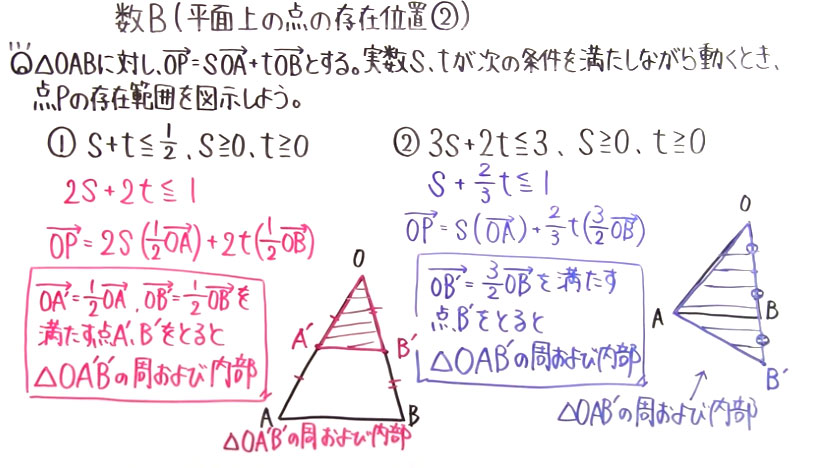 数B(平面上の点の存在位置②)
Q △OABに対し、OP→=sOA→+tOB→とする。実数s、tが次の条件を満たしながら動くとき、
点Pの存在範囲を図示しよう。
① s+t≦1/2、s≧0、t≧0
2s+2t≦1
OP→=2s(1/2OA→)+2t(1/2OB→)
OA'→=1/2OA→、OB'→=1/2OB→を
満たす点A'、B'をとると
△OA'B'の周および内部
O
A'
B'
A
B
△OA'B'の周および内部
② 3s+2t≦3、s≧0、t≧0
s+2/3t≦1
OP→=s(OA→)+2/3t(3/2OB→)
OB'→=3/2OB→を満たす
点B'をとると
△OAB'の周および内部
O
A
B
B'
△OAB'の周および内部